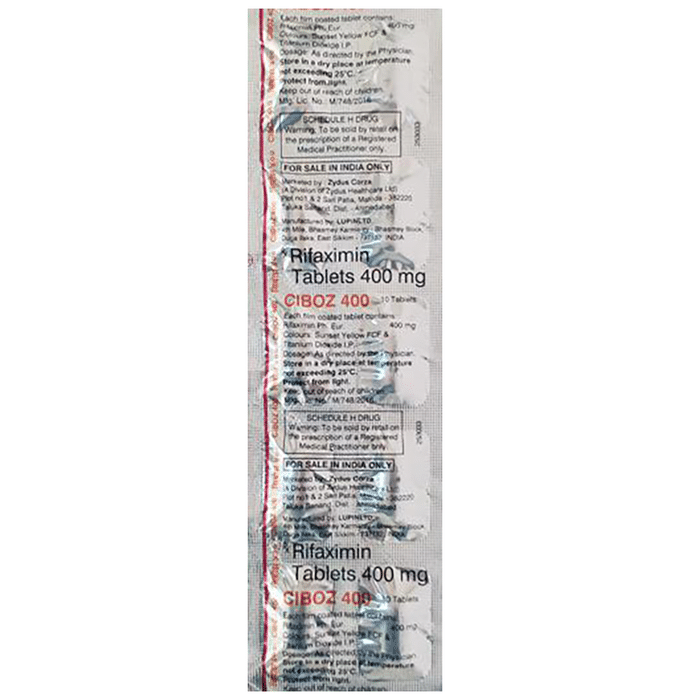 Each film coated tablet contains:
Rifaximin Ph. Eur. 400 mg
Colours: Sunset Yellow FCF &
Titanium Dioxide I.P.
Dosage: As directed by the Physician.
Store in a dry place at temperature
not exceeding 25°C.
Protect from light.
Keep out of reach of children.
Mfg. Lic. No.: M/748/2016
SCHEDULE H DRUG
Warning: To be sold by retail on
the prescription of a Registered
Medical Practitioner only.
253033
FOR SALE IN INDIA ONLY
Marketed by: Zydus Corza
(A Division of Zydus Healthcare Ltd)
Plot no1 & 2 Sari Patia, - 382220
Taluka Sanand, Dist. - Ahmedabad
Manufactured by: LUPIN LTD.
Mile, Bhasmey, Karmarey - Bhasmey Block,
Duga Ilaka, East Sikkim - 737132 INDIA
Rifaximin
Tablets 400 mg
CIBOZ 400 10 Tablets
Each film coated tablet contains:
Rifaximin Ph. Eur. 400 mg
Colours: Sunset Yellow FCF &
Titanium Dioxide I.P.
Dosage: As directed by the Physician.
Store in a dry place at temperature
not exceeding 25°C.
Protect from light.
Keep out of reach of children.
Mfg. Lic. No. M/748/2016
SCHEDULE H DRUG
Warning: To be sold by retail on
the prescription of a Registered
Medical Practitioner only.
253033
FOR SALE IN INDIA ONLY
Marketed by: Zydus Corza
(A Division of Zydus Healthcare Ltd)
Plot no1 & 2 Sari Patia, - 382220
Taluka Sanand, Dist. - Ahmedabad
Manufactured by: LUPIN LTD.
Mile, Bhasmey, - Bhasmey Block,
Duga Ilaka, East Sikkim - 737132 INDIA
Rifaximin
Tablets 400 mg
CIBOZ 400 10 Tablets
Each film coated tablet contains:
Rifaximin Ph. Eur. 400 mg
Colours: Sunset Yellow FCF &
Titanium Dioxide I.P.
Dosage: As directed by the Physician.
Store in a dry place at temperature
not exceeding 25°C.
Protect from light.
Keep out of reach of children.